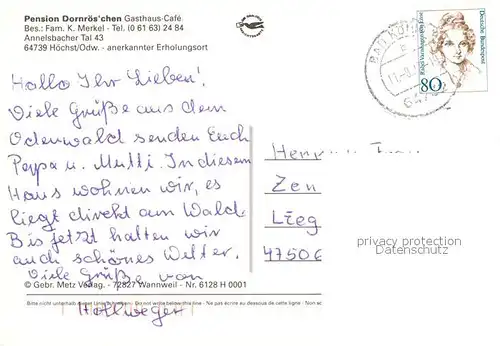 Pension Dornrös'chen Gasthaus-Café
Bes.: Fam. K. Merkel · Tel. (0 61 63) 24 84
Annelsbacher Tal 43
64739 Höchst/Odw. - anerkannter Erholungsort
Deutsche Bundespost
80
BAD KÖNIG
Hallo Ihr Lieben!
Viele Grüße aus dem
Odenwald senden Euch
Peppa u. Mutti. In diesem
Haus wohnen wir, es
liegt direkt am Wald.
Bis jetzt halten wir
auch schönes Wetter.
Viele Grüße von
Hollweger
47506
privacy protection
watermark
© Gebr. Metz Verlag. - 72827 Wannweil - Nr. 6128 H 0001
Bitte nicht unterhalb dieser Linie schreiben. Do not write below this line - Ne pas écrire au dessous de cette ligne - Non sc